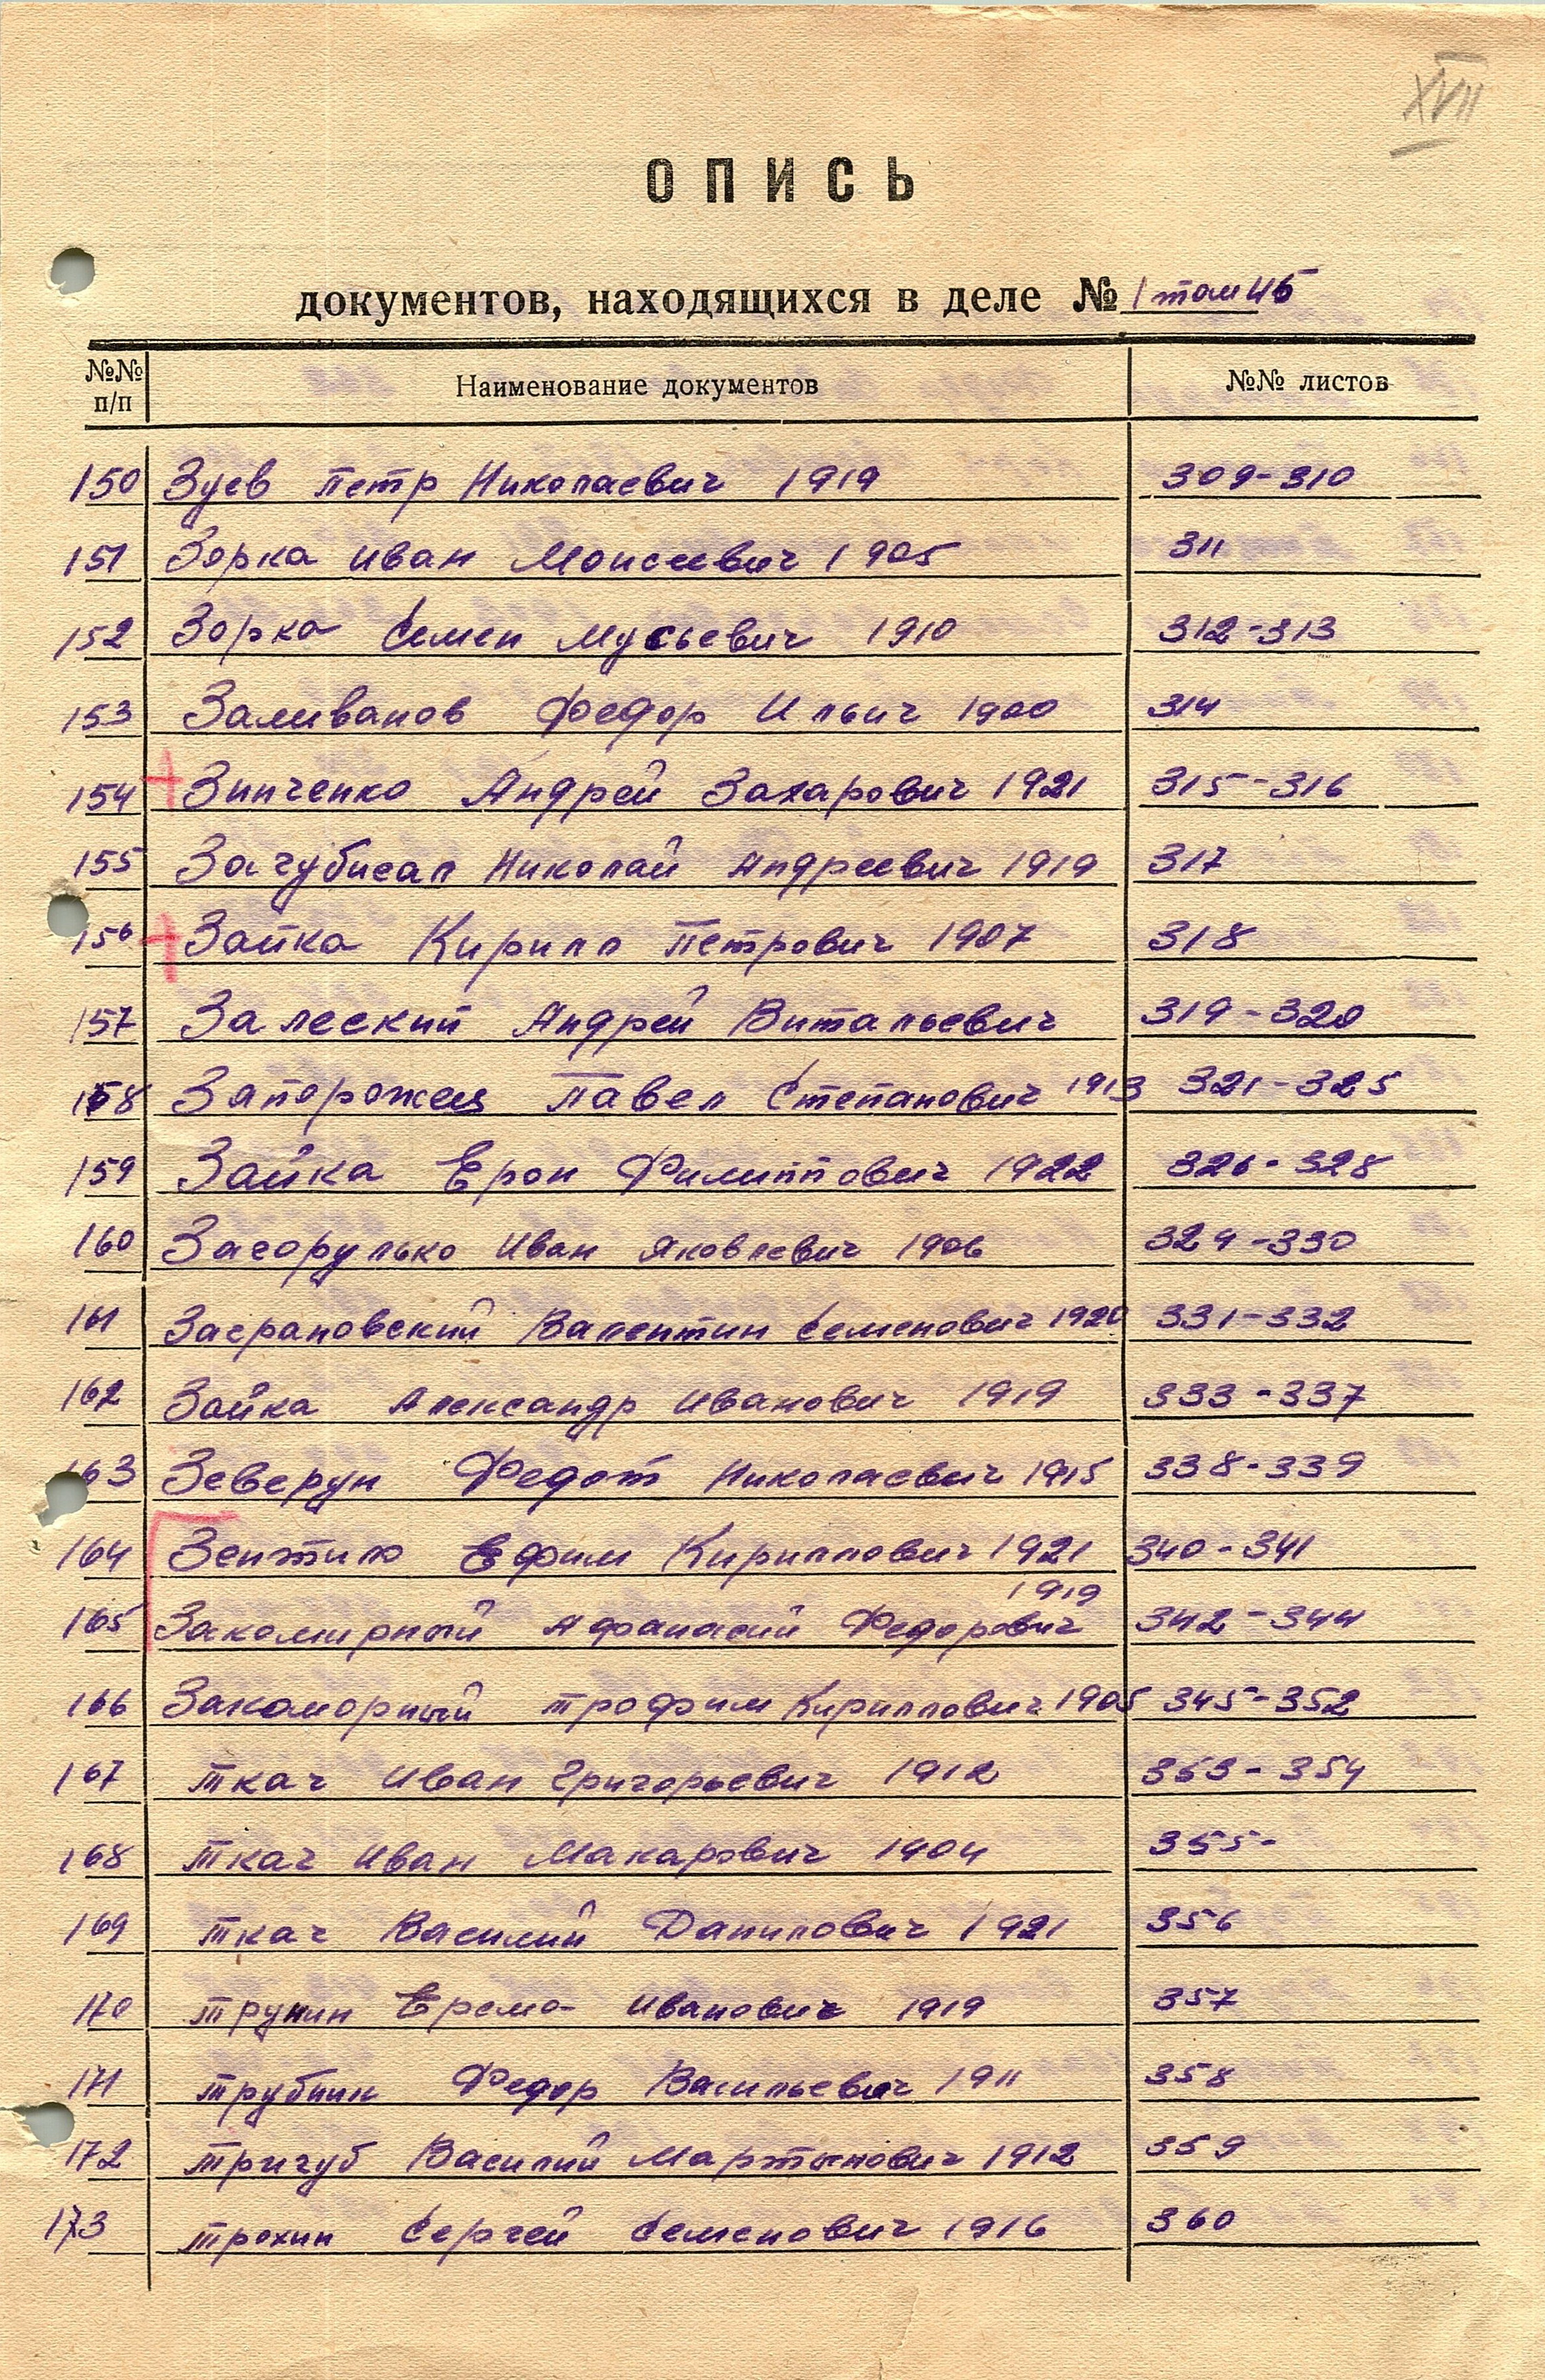 XVII
ОПИСЬ
документов, находящихся в деле № 1 том 46
№№ п/п Наименование документов №№ листов
150 Зуев Петр Николаевич 1919 309-310
151 Зорка Иван Моисеевич 1905 311
152 Зорка Семен Мусьевич 1910 312-313
153 Заливанов Федор Ильич 1900 314
154 + Зинченко Андрей Захарович 1921 315-316
155 Загубисал Николай Андреевич 1919 317
156 + Зайка Кирилл Петрович 1907 318
157 Залеский Андрей Витальевич 319-320
158 Запорожец Павел Степанович 1913 321-325
159 Зайка Ерон Филиппович 1922 326-328
160 Засорулько Иван Яковлевич 1906 329-330
161 Заграновский Валентин Семенович 1920 331-332
162 Зайка Александр Иванович 1919 333-337
163 Зеверун Федот Николаевич 1915 338-339
164 Ефим Кириллович 1921 340-341
165 Закомирный Афанасий Федорович 1919 342-344
166 Закоморный Трофим Кириллович 1905 345-352
167 Ткач Иван Григорьевич 1912 353-354
168 Ткач Иван Макарович 1904 355-
169 Ткач Василий Данилович 1921 356
170 Трунин Ерема Иванович 1919 357
171 Трубнин Федор Васильевич 1911 358
172 Тригуб Василий Мартынович 1912 359
173 Трохин Сергей Семенович 1916 360